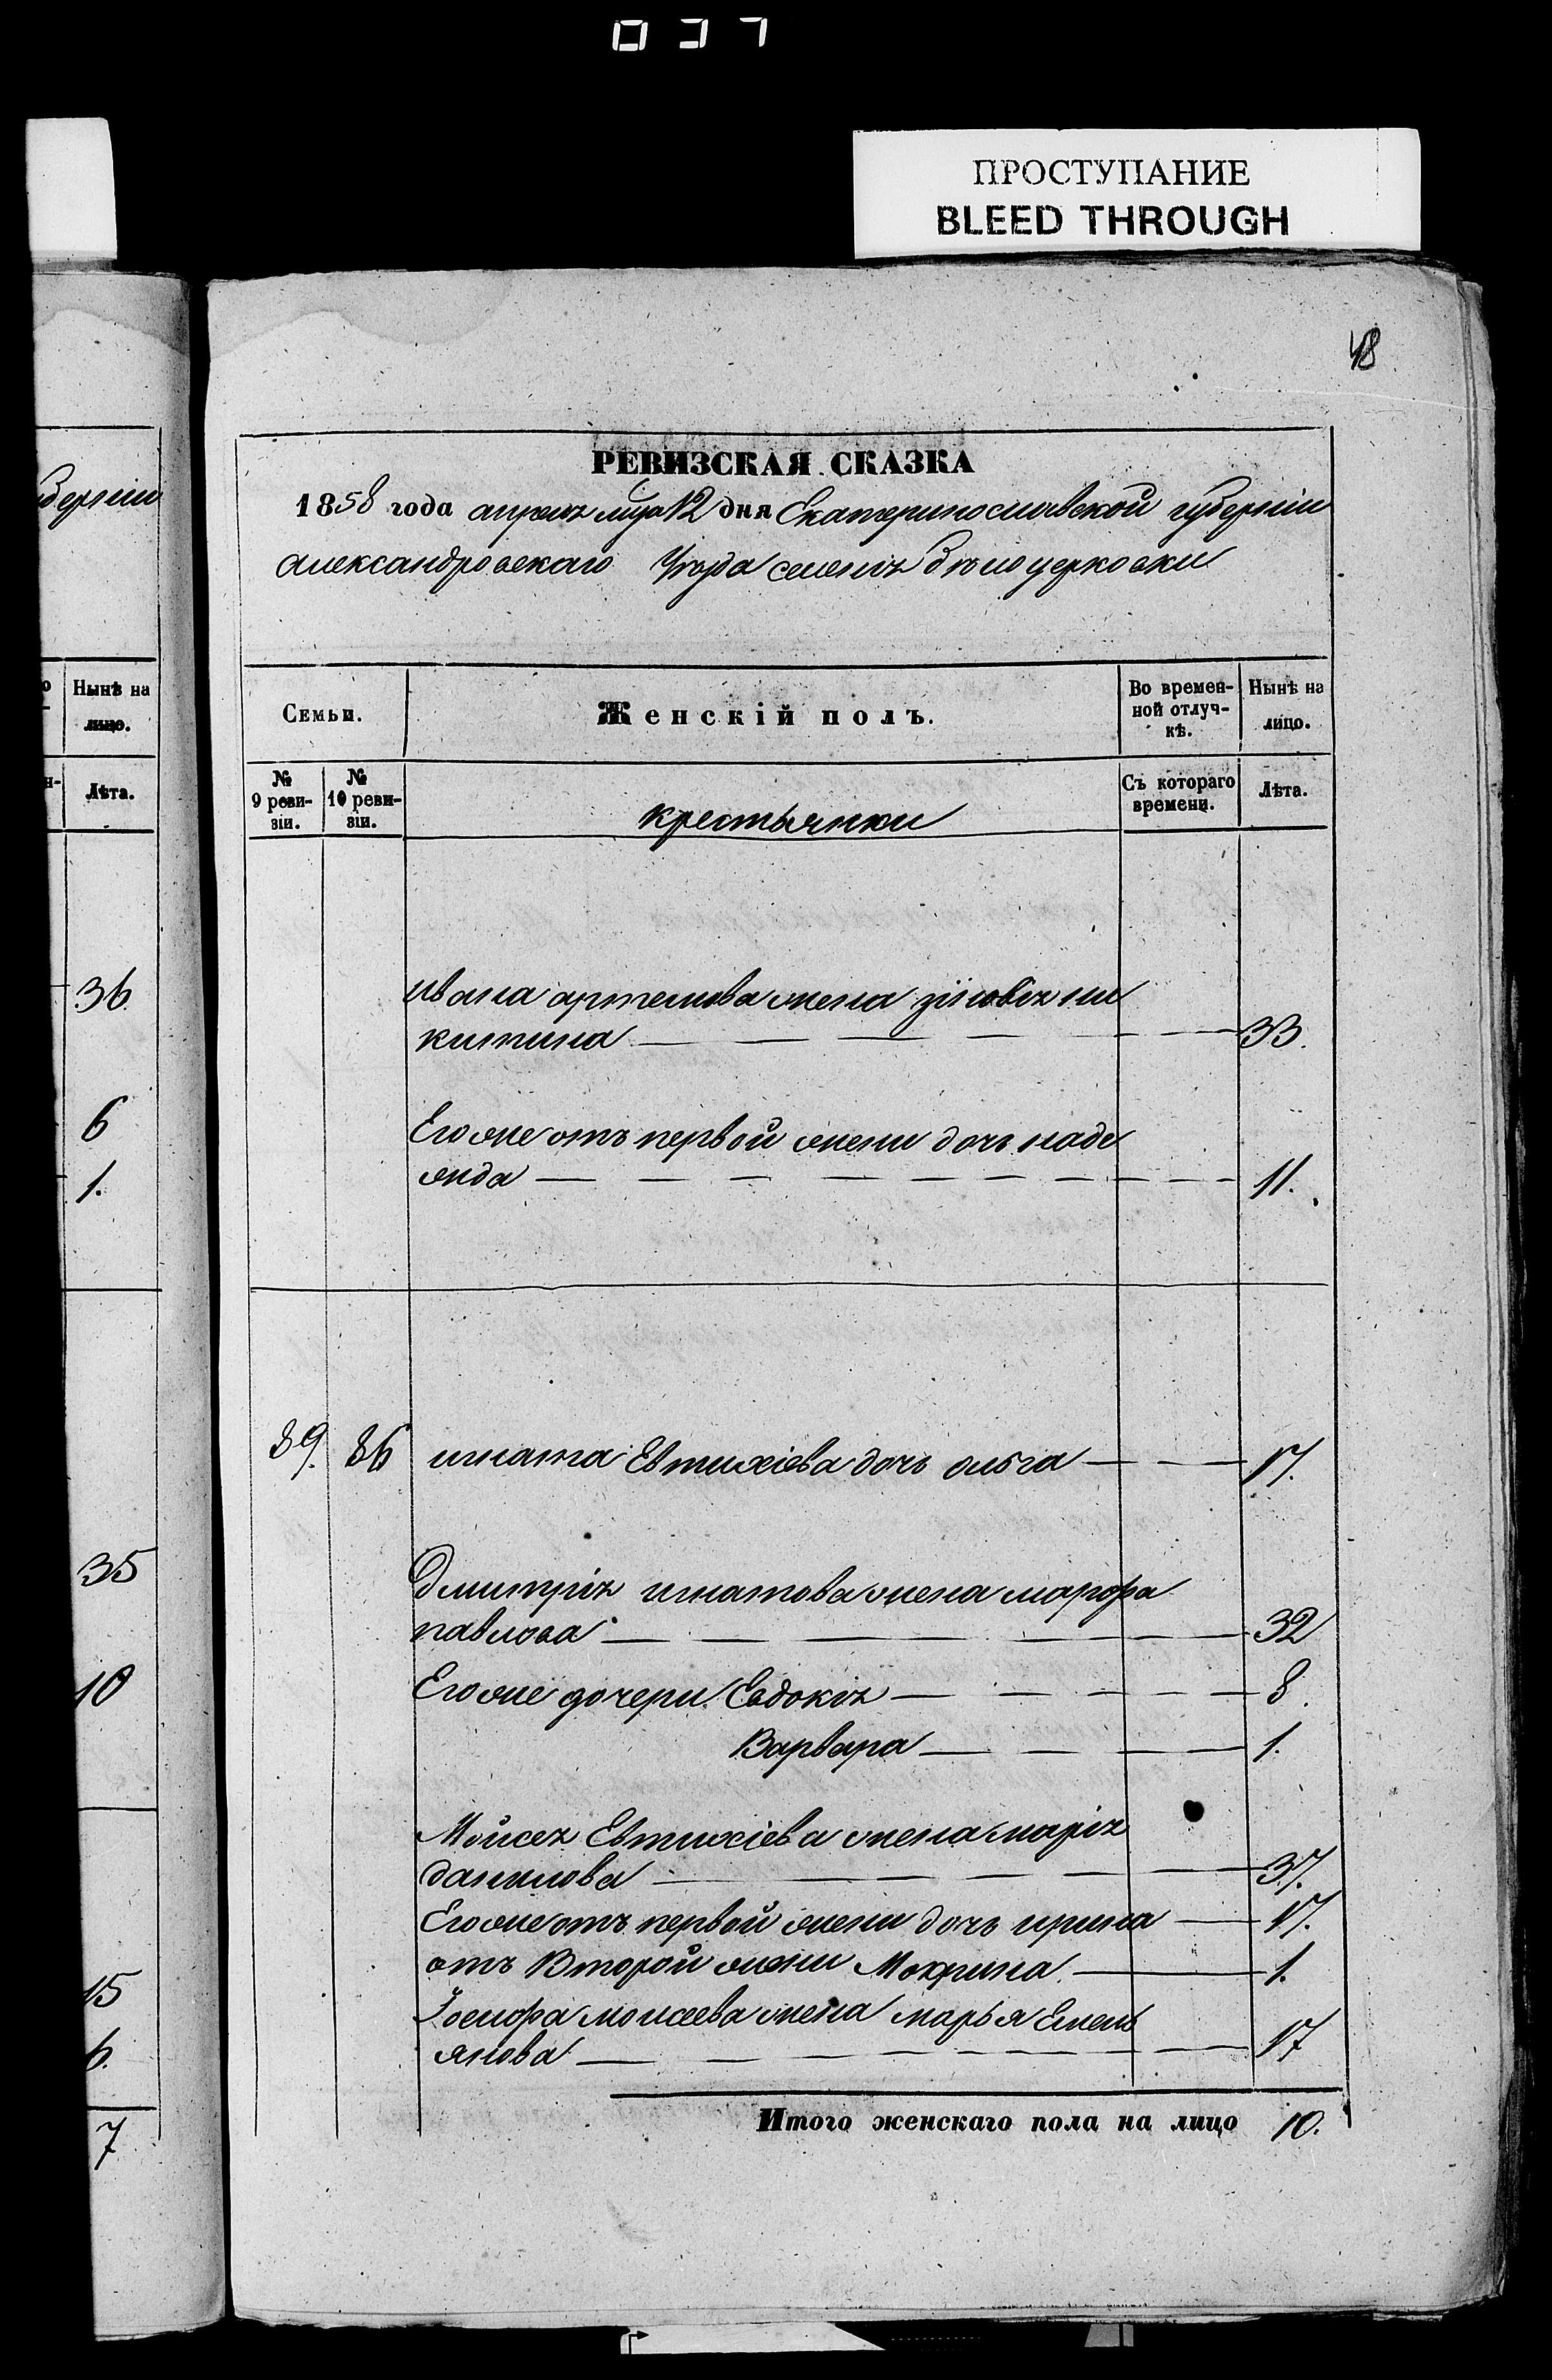 037
ПРОСТУПАНИЕ
BLEED THROUGH
48
губерніи
Нынѣ на
лицо.
Лѣта.
36.
6
1.
35
10
15
6.
7
РЕВИЗСКАЯ СКАЗКА
1858 года апреля мца 12 дня Екатеринославской губерніи
александровскаго Уѣзда селенія бѣлоцерковки
Семьи.
Женскій полъ.
Во времен-
ной отлуч-
кѣ.
Нынѣ на
лицо.
№
9 реви-
зіи.
№
10 реви-
зіи.
крестьянки
Съ котораго
времени.
Лѣта.
ивана артемова жена зіновія ни
китина 33.
Его же отъ первой жени дочь наде
жда 11.
89. 86 игната Евтихіева дочь ольга 17.
Дмитрія игнатова жена марфа
павлова 32
Его же дочери Евдокія 8.
Варвара 1.
Мойсея Евтихіева жена марія
данилова 37.
Его же отъ первой жени дочь ирина 17.
отъ Второй жени Мокрина 1.
Іосифа моисеева жена марья Емель
янова 17
Итого женскаго пола на лицо 10.